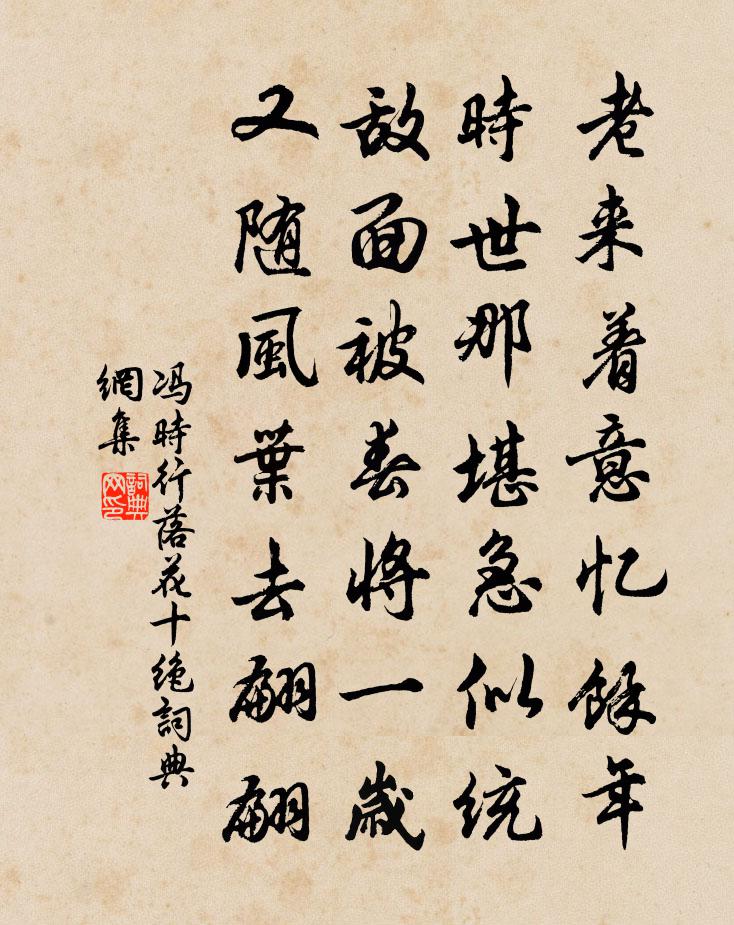 老来着意忆餘年
時世那堪急似统
敌面被春將一歲
又随風葉去翩翩
冯時行落花十绝詞典
網集
詞典
网印